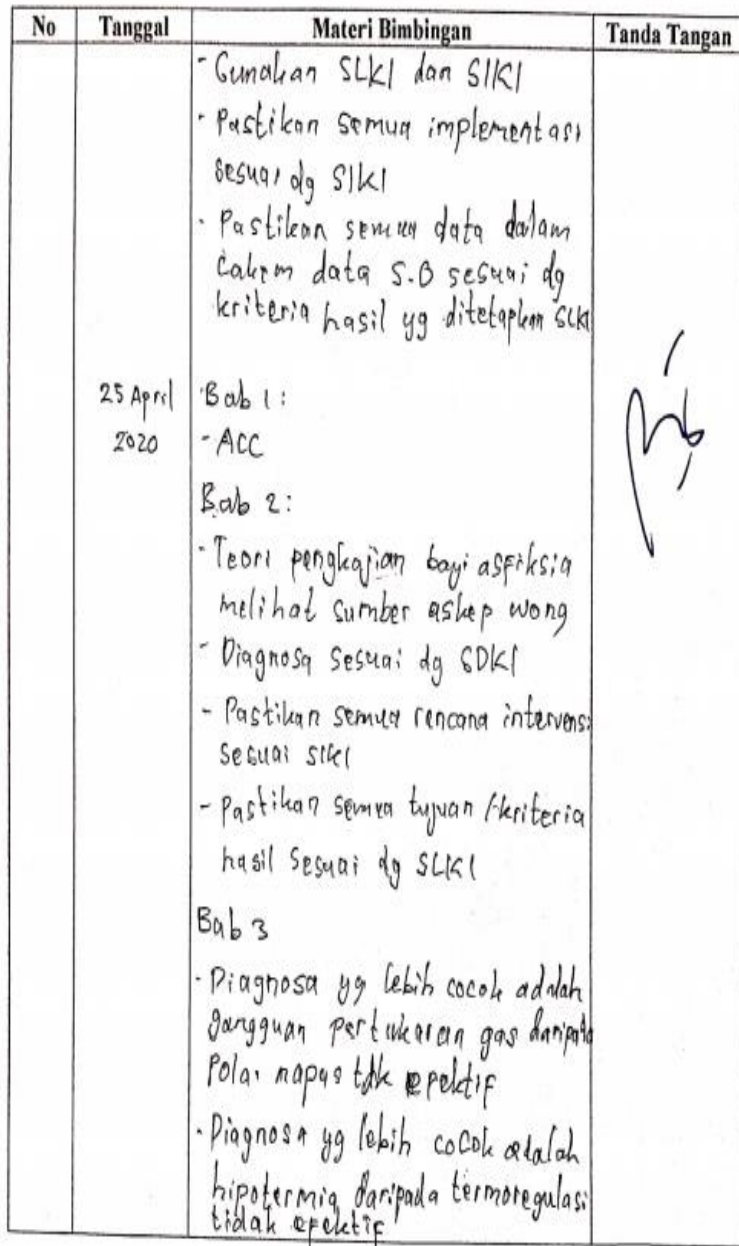 No Tanggal Materi Bimbingan Tanda Tangan
- Gunakan SLKI dan SIKI
- Pastikan semua implementasi
sesuai dg SIKI
- Pastikan semua data dalam
data S.O sesuai dg
kriteria hasil yg ditetapkan SLKI
25 April Bab 1:
2020 - ACC
Bab 2:
- Teori pengkajian bayi asfiksia
melihat sumber askep wong
- Diagnosa sesuai dg SDKI
- Pastikan semua rencana intervensi
sesuai SIKI
- Pastikan semua tujuan /kriteria
hasil sesuai dg SLKI
Bab 3
- Diagnosa yg lebih cocok adalah
gangguan pertukaran gas daripada
Pola napas tdk epektif
- Diagnosa yg lebih cocok adalah
hipotermia daripada termoregulasi
tidak epektif